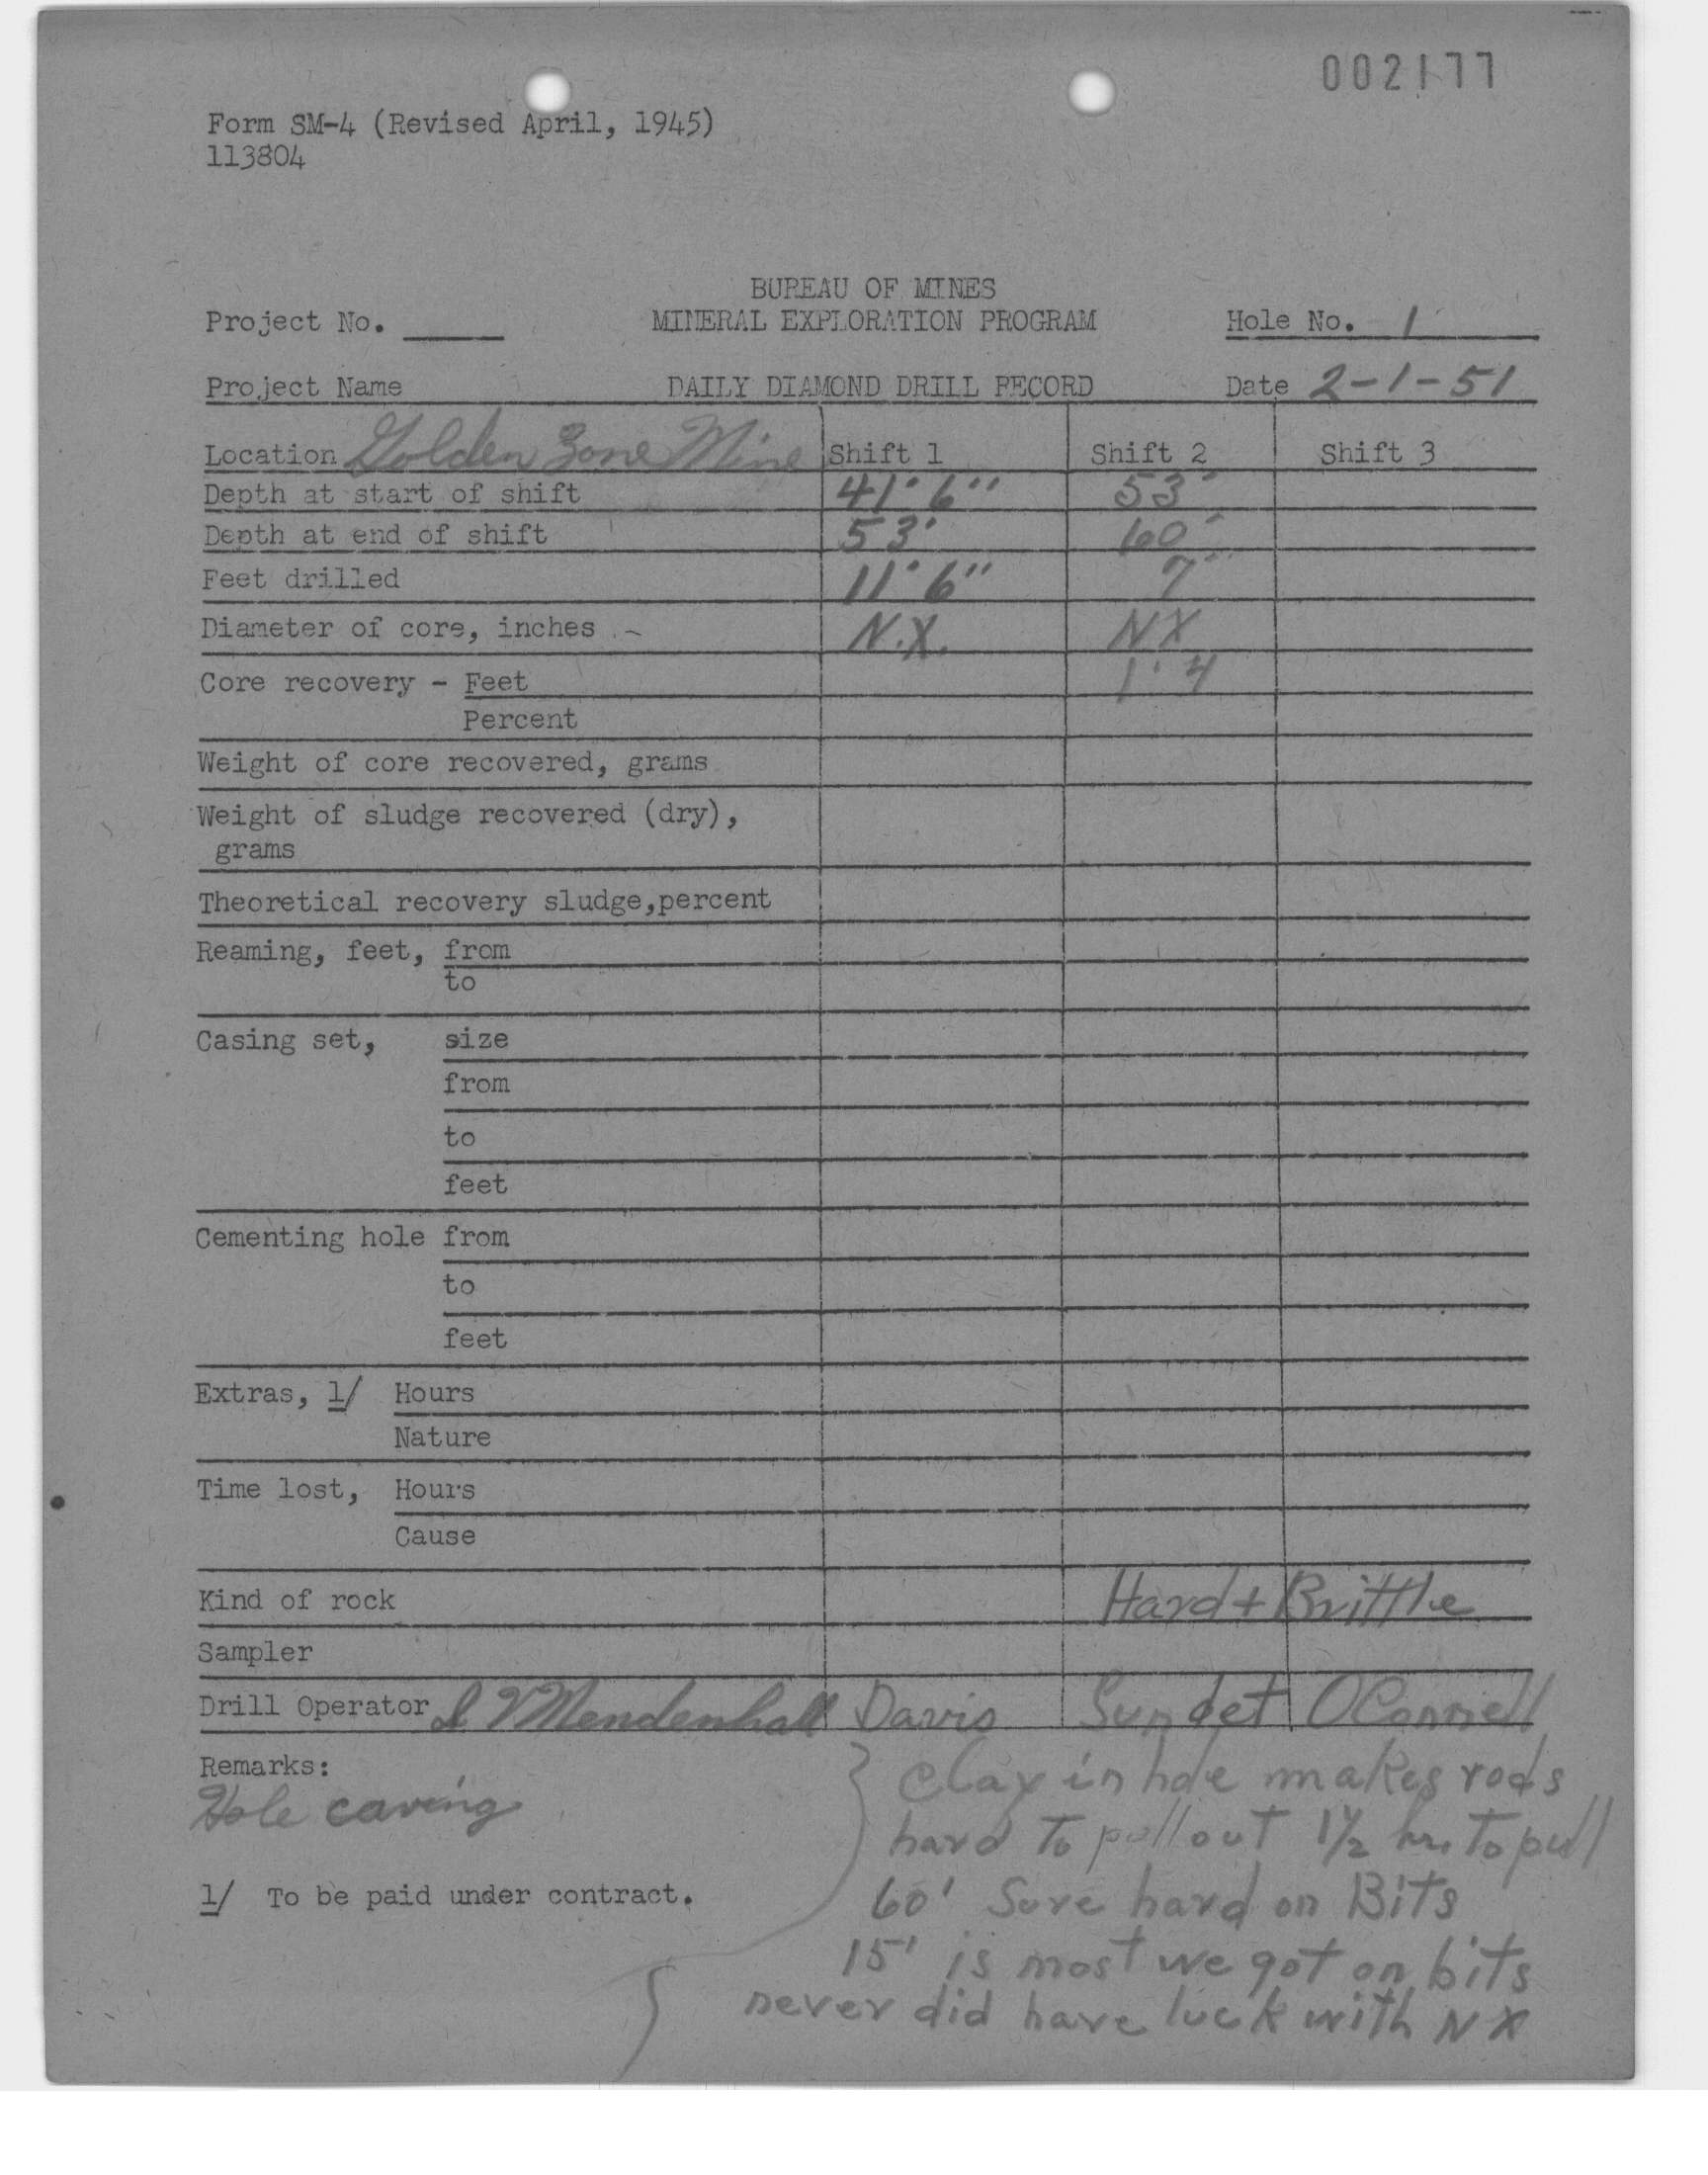 002177
Form SM-4 (Revised April, 1945)
113804
BUREAU OF MINES
Project No. MINERAL EXPLORATION PROGRAM Hole No. 1
Project Name DAILY DIAMOND DRILL RECORD Date 2-1-51
Location Golden Zone Mine Shift 1 Shift 2 Shift 3
Depth at start of shift 41' 6" 53'
Depth at end of shift 53' 60'
Feet drilled 11' 6" 7'
Diameter of core, inches N.X. NX
Core recovery - Feet 1' 4
Percent
Weight of core recovered, grams
Weight of sludge recovered (dry),
grams
Theoretical recovery sludge,percent
Reaming, feet, from
to
Casing set, size
from
to
feet
Cementing hole from
to
feet
Extras, 1/ Hours
Nature
Time lost, Hours
Cause
Kind of rock Hard + Brittle
Sampler
Drill Operator Mendenhall Davis Sundet OConnell
Remarks:
Hole caving
Clay in hole makes rods
hard to pull out 1 1/2 hr. to pull
1/ To be paid under contract.
60' Sure hard on Bits
15' is most we got on bits
never did have luck with NX